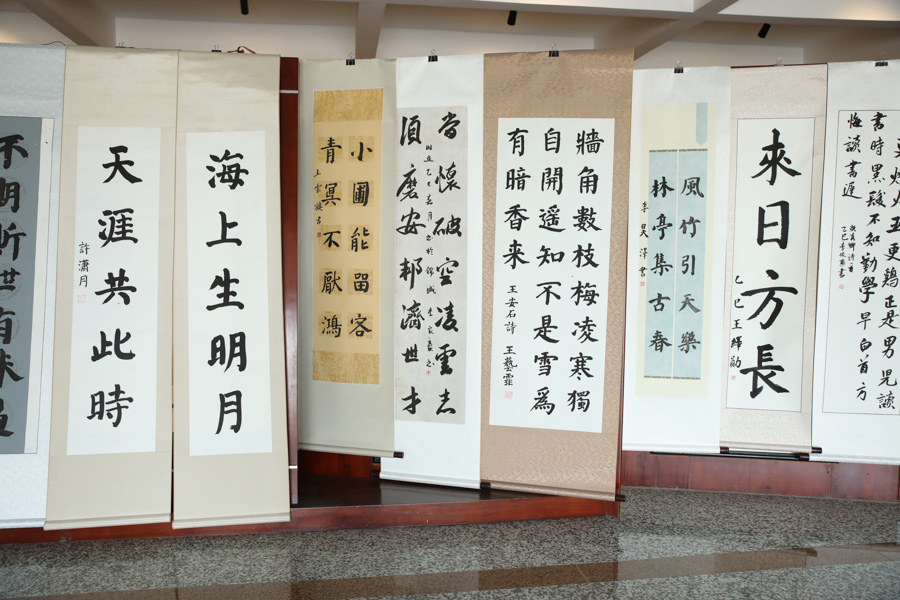 海上生明月
天涯共此時
許瀟月
小圃能留客
青冥不厭鴻
當懷破空凌雲志
須磨安邦濟世才
牆角數枝梅凌寒獨
自開遥知不是雪為
有暗香来
王安石詩
王藝霏
風竹引天樂
林亭集古春
李昊澤書
來日方長
乙巳王繹勛
五更鶏正是男児讀
書時黑髮不知勤學早白首方
悔讀書遲